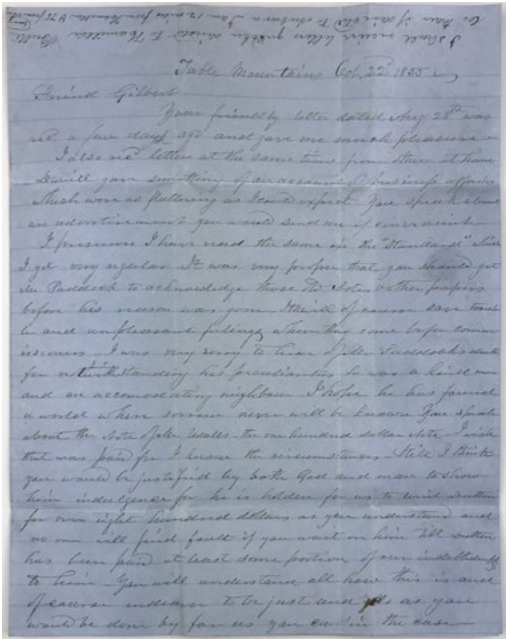 I shall receive letters quicker directed to Hamilton Butte
Co. than if directed to Auburn I am 12 miles from Hamilton & 75 from
Table Mountains Oct. 22nd 1855
Friend Gilbert
Your friendly letter dated Aug 28th was
recd a few days ago and gave me much pleasure
I also recd letters at the same time from others at home
gave something of an account of business affairs
which were as flattering as I could expect. You speak about
an advertisement you would send me if convenient
I presume I have read the same in the "Standard" which
I get very regular It was very proper that you should get
Mr Paddock to acknowledge those notes & other papers
before his reason was gone It will of course save trouble
and unpleasant feelings when they come before comm
issioners I was very sorry to hear of Mr Paddocks death
for notwithstanding his peculiarities he was a kind man
and an accomodating neighbour I hope he has found
a world where sorrow never will be known You speak
about the note of Mr Wells the one hundred dollar note I wish
that was paid for I know the circumstances. Still I think
you would be justified by both God and man to show
him indulgence for he is holden for us to
for over eight hundred dollars as you understand and
no one will find fault if you wait on him till
has been paid at least some portion of our indebtedness
to him. You will understand all how this is and
of course endeavor to be just and as you
would be done by far as you can in the case